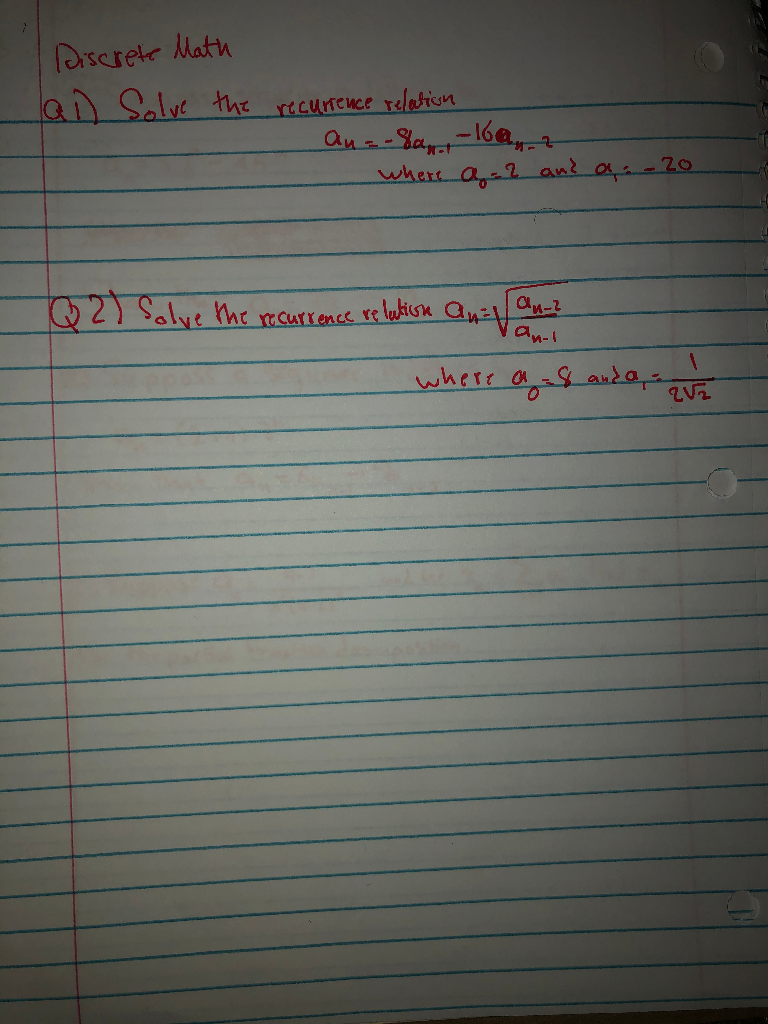 Discrete Math
Q1) Solve the recurrence relation
aₙ = -8aₙ₋₁ - 16aₙ₋₂
where a₀ = 2 and a₁ = -20
Q2) Solve the recurrence relation aₙ = √(aₙ₋₂/aₙ₋₁)
where a₀ = 8 and a₁ = 1/(2√2)